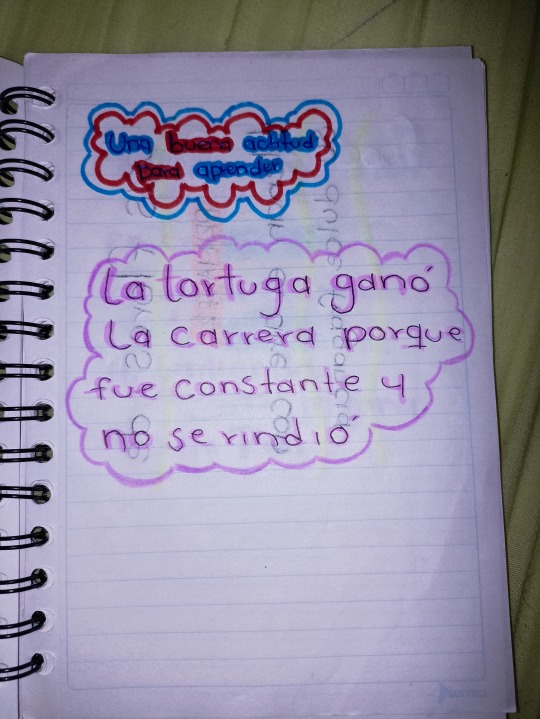 Una buena actitud
para aprender
La tortuga ganó
La carrera porque
fue constante y
no se rindió